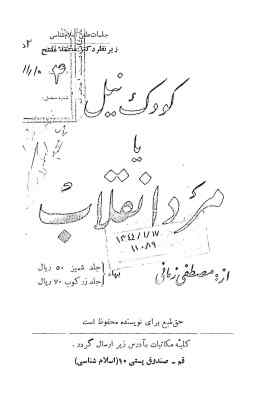 جلسات علمی اسلام‌شناسی
زیر نظر دکتر محمد مفتح
کودک نیل
یا
مرد انقلاب
۱۳۴۴/۱/۱۷
۱۱۰۸۹
از: مصطفی زمانی
بهاء
جلد شمیز ۵۰ ریال
جلد زرکوب ۷۰ ریال
حق طبع برای نویسنده محفوظ است
کلیهٔ مکاتبات بآدرس زیر ارسال گردد.
قم - صندوق پستی ۱۰ (اسلام شناسی)